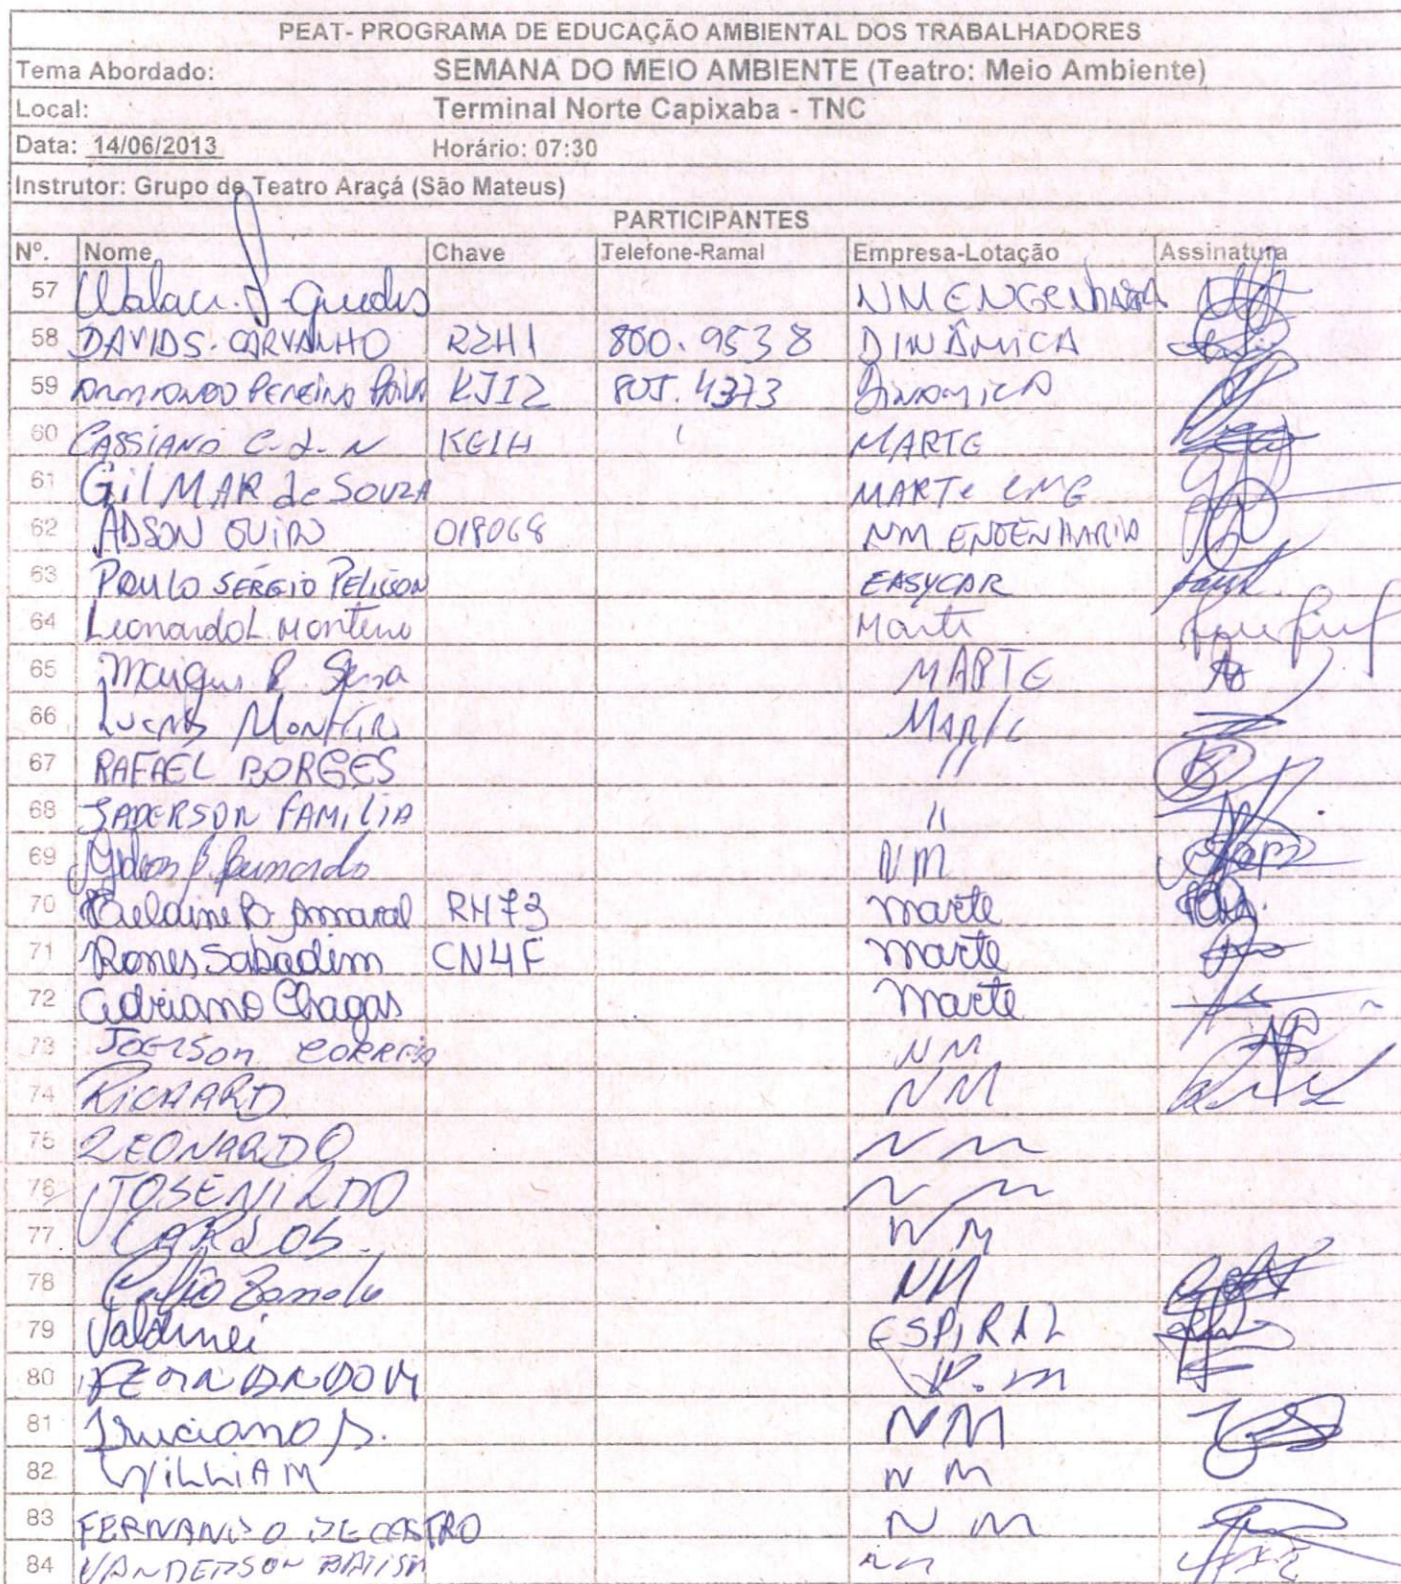 PEAT- PROGRAMA DE EDUCAÇÃO AMBIENTAL DOS TRABALHADORES
Tema Abordado: SEMANA DO MEIO AMBIENTE (Teatro: Meio Ambiente)
Local: Terminal Norte Capixaba - TNC
Data: 14/06/2013 Horário: 07:30
Instrutor: Grupo de Teatro Araçá (São Mateus)
PARTICIPANTES
Nº. Nome Chave Telefone-Ramal Empresa-Lotação Assinatura
57 Walaci Guedes NM ENGENHARIA
58 DAVID S. CARVALHO R2H1 800.9538 DINÂMICA
59 PEREIRA KJI2 4373 DINAMICA
60 CASSIANO C. d. N KEIH MARTE
61 GilMAR de SOUZA MARTE ENG
62 ADSON 018068 NM ENGENHARIA
63 PAULO SÉRGIO PELISSON EASYCAR
64 Leonardo L. Monteiro Marte
65 R. Sena MARTE
66 LUCAS MONTEIRO MARTE
67 RAFAEL BORGES //
68 JADERSON FAMILIA //
69 NM
70 B. Amaral RH73 marte
71 Rones Sabadim CN4F marte
72 Adriano Chagas marte
73 JOELSON CORREIA NM
74 RICHARD NM
75 LEONARDO NM
76 JOSENILDO NM
77 CARLOS. NM
78 NM
79 Valdinei ESPIRAL
80 FERNANDO M
81 Luciano S. NM
82 WILLIAM NM
83 FERNANDO DE CASTRO NM
84 VANDERSON BATISTA NM